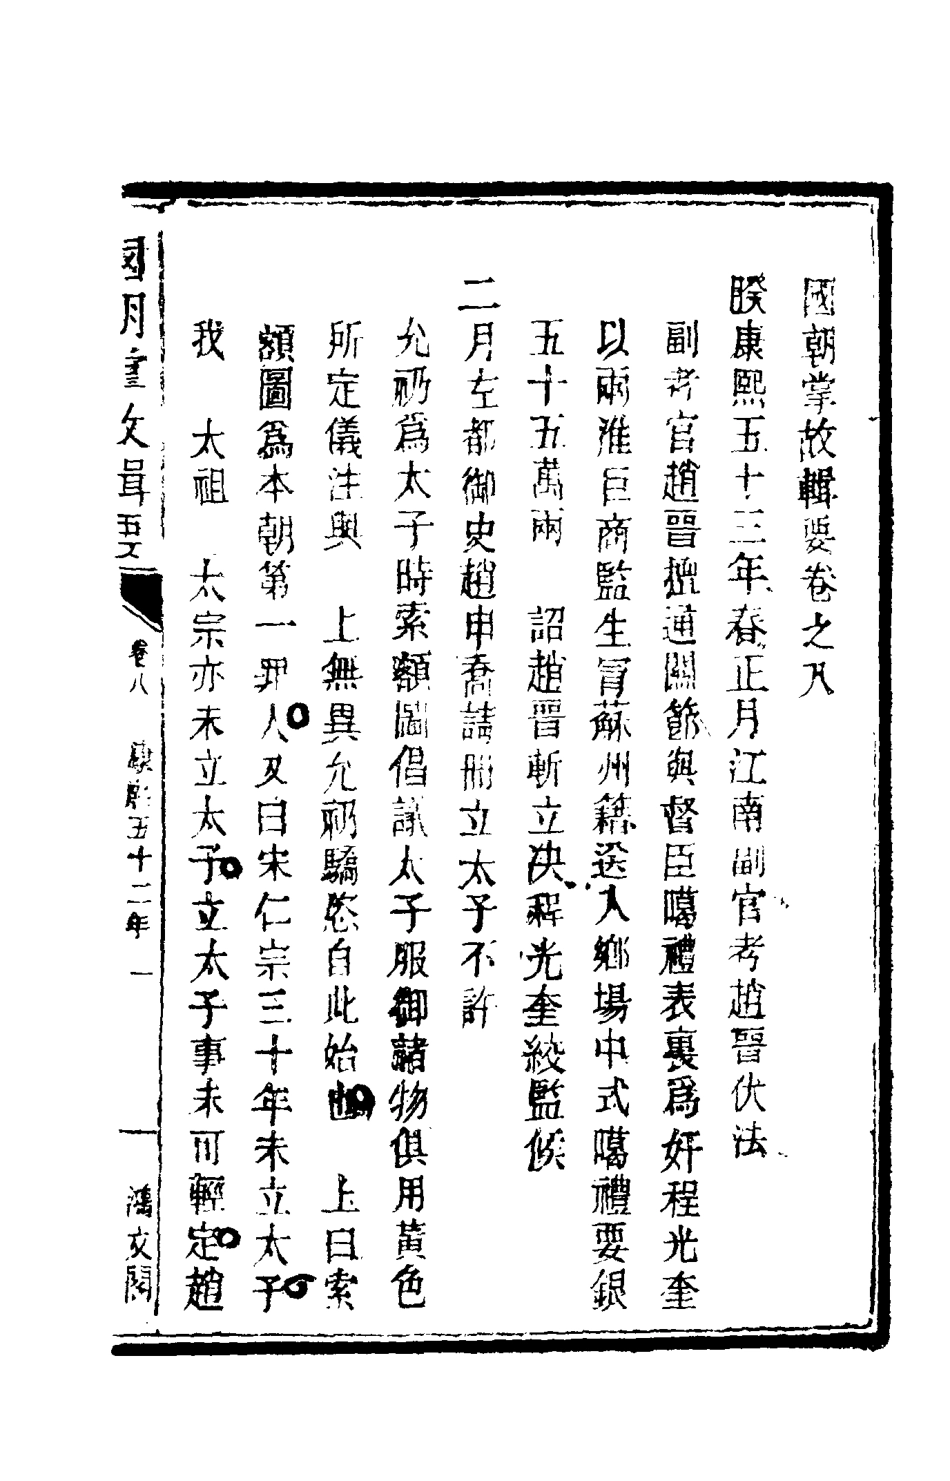 國朝掌故輯要卷之八
睽康熙五十三年春正月江南副官考趙晉伏法
副考官趙晉擅通關節與督臣噶禮表裏爲奸程光奎
以兩淮巨商監生冒蘇州籍送入鄉場中式噶禮要銀
五十五萬兩　詔趙晉斬立决程光奎絞監候
二月左都御史趙申喬請冊立太子不許
允礽爲太子時索額圖倡議太子服御諸物俱用黃色
所定儀注與　上無異允礽驕恣自此始也　上曰索
額圖爲本朝第一罪人又曰宋仁宗三十年未立太子
我　太祖　太宗亦未立太子立太子事未可輕定趙
國朝掌故輯要　卷八　康熙五十二年　一　鴻文閣